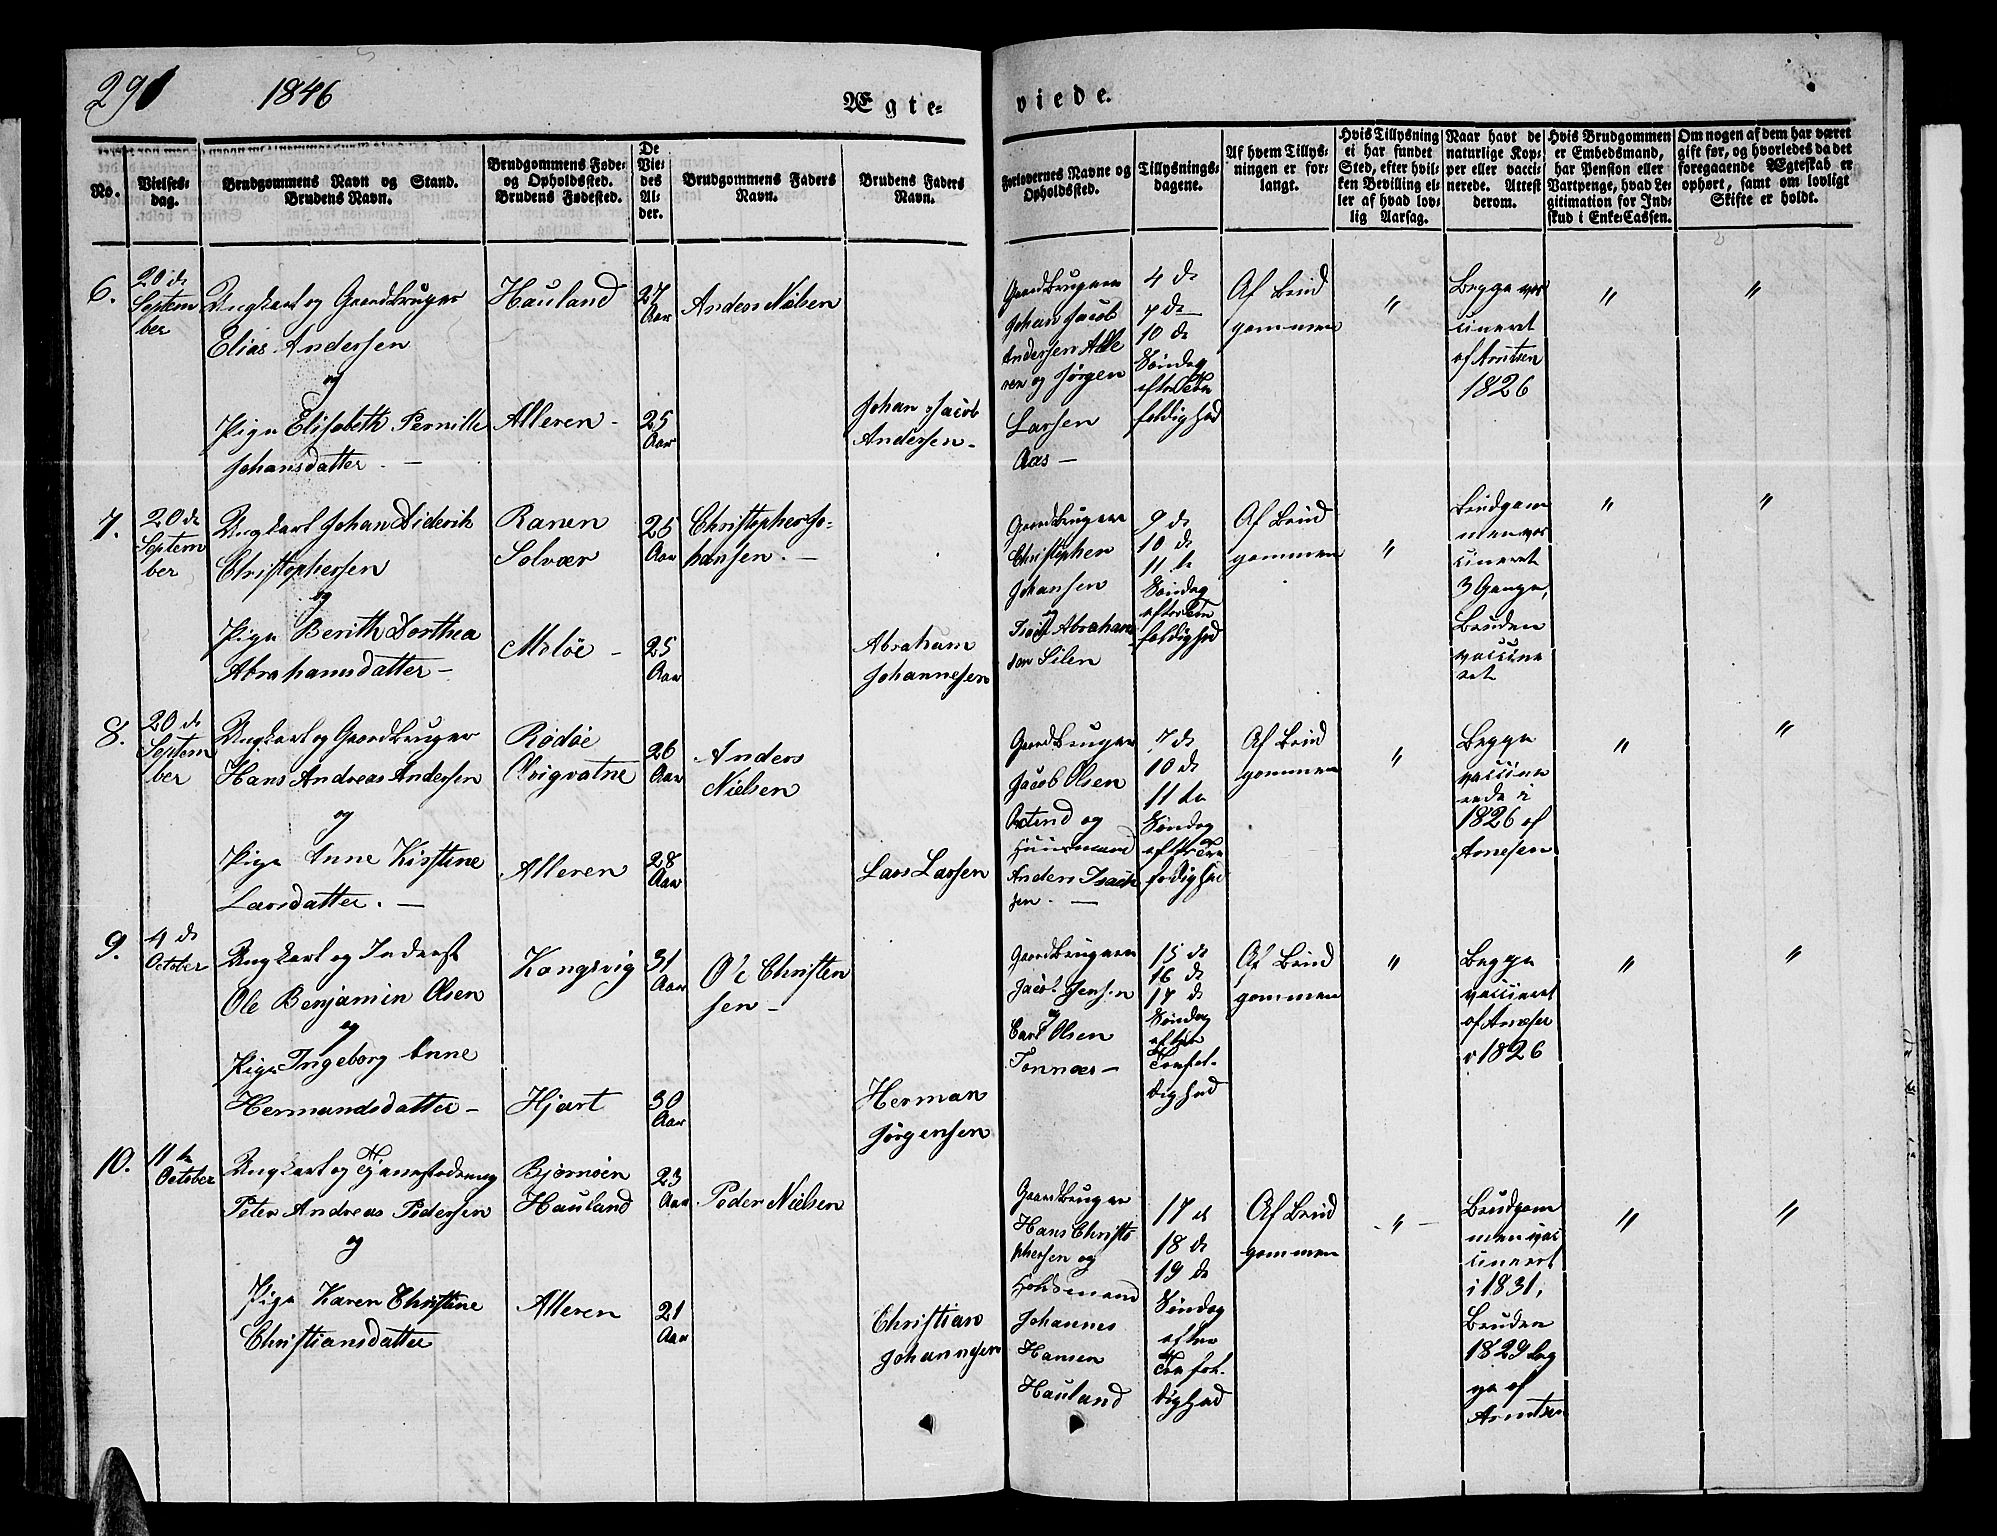 291
1846
Ægte-
viede.
No.
Vielses-
dag.
Brudgommens Navn og Stand.
Brudens Navn.
Brudgommens Føde-
og Opholdssted.
Brudens Fødested.
De
Vie-
des
Al-
der.
Brudgommens Faders
Navn.
Brudens Faders
Navn.
Forlovernes Navne og
Opholdssted.
Tillysnings-
dagene.
Af hvem Tillys-
ningen er for-
langt.
Hvis Tillysning
ei har fundet
Sted, efter hvil-
ken Bevilling el-
ler af hvad lov-
lig Aarsag.
Naar havt de
naturlige Kop-
per eller vacci-
nerede. Attest
derom.
Hvis Brudgommen
er Embedsmand,
har Pension eller
Vartpenge, hvad Le-
gitimation for Ind-
skud i Enke-Cassen.
Om nogen af dem har været
gift før, og hvorledes da det
foregaaende Ægteskab er
ophørt, samt om lovligt
Skifte er holdt.
6.
20 de
Septem
ber
Ungkarl og Gaardbruger
Elias Andersen
og
Pige Elisabeth Pernille
Johansdatter. —
Hauland
Alleren -
27
Aar
25
Aar
Anders Nielsen
Johan Jacob
Andersen -
Gaardbrugere
Johan Jacob
Andersen Alle
ren og Jørgen
Larsen
Aas —
4 de
7 de
10 de
Søndag
efter Tre
foldighed
Af Brud
gommen
"
Begge vac
cineret
af Arntsen
1826
"
"
7.
20 de
Septem
ber
Ungkarl Johan Diderik
Christophersen
og
Pige Berith Dorthea
Abrahamsdatter —
Ranen
Solvær
Moløe -
25
Aar
25
Aar
Christopher Jo-
hansen. -
Abraham
Johannesen
Gaardbrugere
Christopher
Johansen
og
Abraham
sen Silen
9 de
10 de
11 te
Søndag
efter Tre
foldighed
Af Brud
gommen
"
Brudgom
men vac
cineret
3 Gange,
Bruden
vaccine
ret
"
"
8.
20 de
Septem
ber
Ungkarl og Gaardbruger
Hans Andreas Andersen
og
Pige Anne Kirstine
Larsdatter. —
Rødøe
Qvigvatne
Alleren
26
Aar
28
Aar
Anders
Nielsen
Lars Larsen
Gaardbruger
Jacob Olsen
og
Huusmand
Anders Isach
sen. —
7 de
10 de
11 te
Søndag
efter Tre
foldighed
Af Brud
gommen
"
Begge
vaccine
rede i
1826 af
Arnesen
"
"
9.
4 de
October
Ungkarl og Inderst
Ole Benjamin Olsen
og
Pige Ingeborg Anne
Hermandsdatter -
Kongsvig
Hjart
31
Aar
30
Aar
Ole Christen
sen -
Herman
Jørgensen
Gaardbrugere
Jacob Jensen
og
Carl Olsen
Tonnæs -
15 de
16 de
17 de
Søndag
efter
Trefol-
dighed
Af Brud
gommen
"
Begge
vaccineret
af Arnesen
1826
"
"
10.
11 te
October
Ungkarl og
Peter Andreas Pedersen
og
Pige Karen Christine
Christiansdatter
Bjørnøen
Hauland
Alleren
23
Aar
21
Aar
Peder Nielsen
Christian
Johannesen
Gaardbruger
Hans Christo
phersen og
Johannes
Hansen
Hauland
17 de
18 de
19 de
Søndag
efter
Trefol-
dighed
Af Brud
gommen
- " -
Brudgom
men vac
cineret
i 1831,
Bruden
1829 beg
ge af
Arntsen
"
"